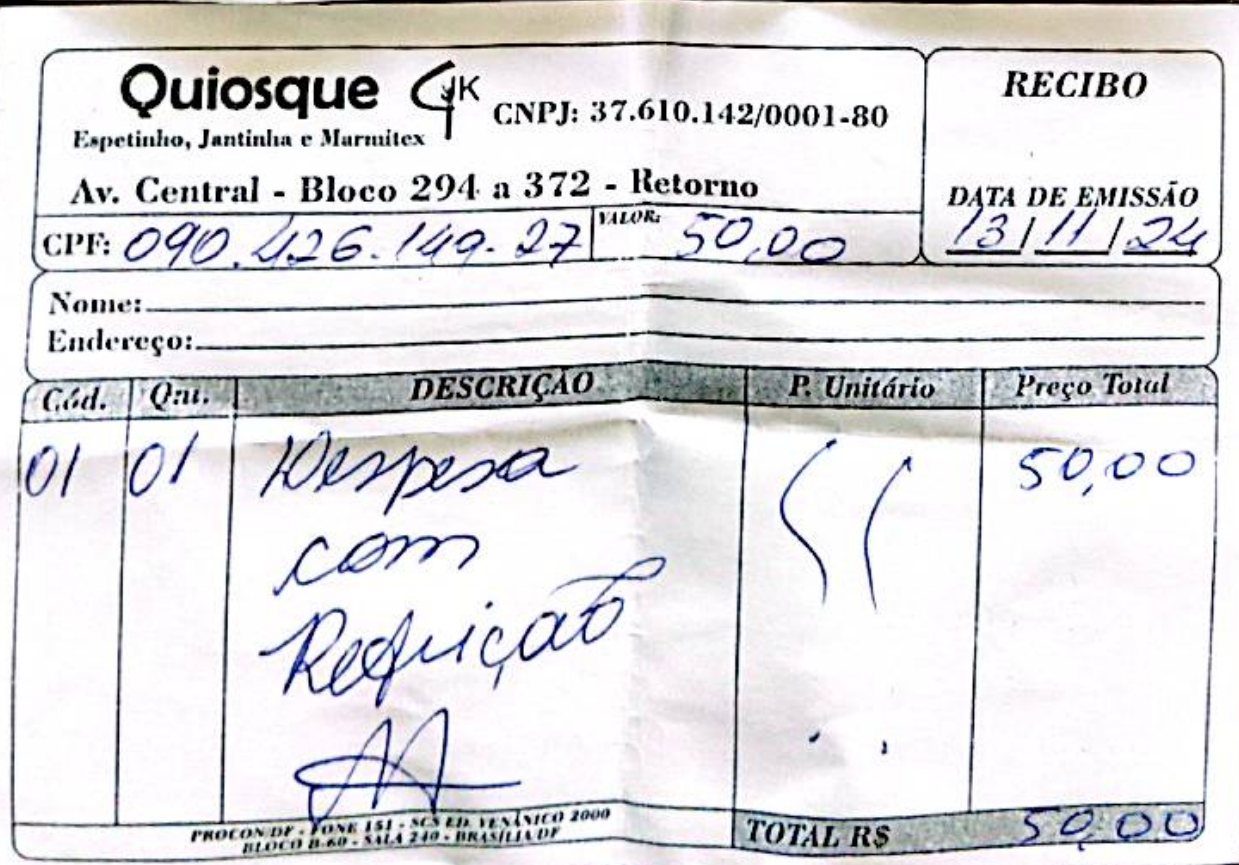 Quiosque GK
CNPJ: 37.610.142/0001-80
Espetinho, Jantinha e Marmitex
Av. Central - Bloco 294 a 372 - Retorno
CPF: 090.426.149-27 VALOR: 50,00
RECIBO
DATA DE EMISSÃO
13/11/24
Nome:
Endereço:
Cód. Qnt. DESCRIÇÃO P. Unitário Preço Total
01 01 Despesa 50,00
com
Refeição
PROCON DF - FONE 151 - SCS ED. VENÂNICO 2000
BLOCO B-60 - SALA 240 - BRASÍLIA/DF
TOTAL R$ 50,00